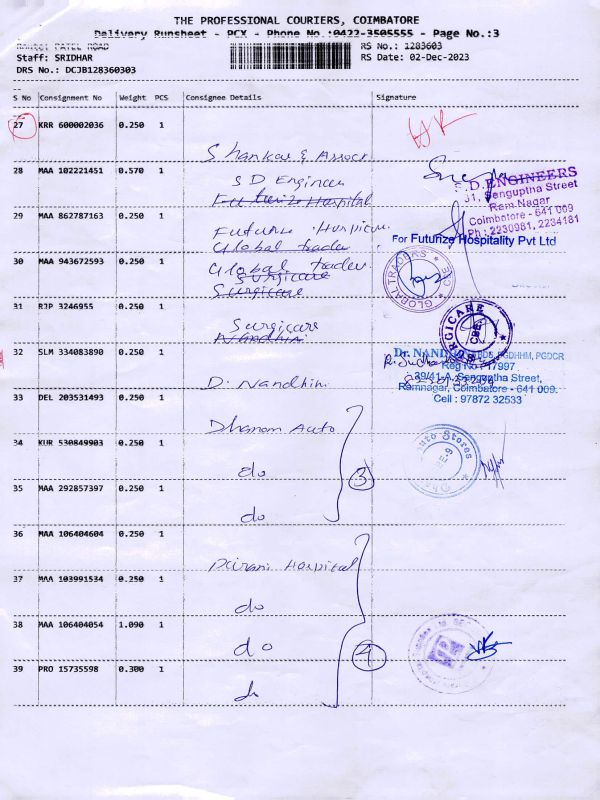 THE PROFESSIONAL COURIERS, COIMBATORE
Delivery Runsheet - PCX - Phone No.:0422-3505555 - Page No.:3
PATEL ROAD
RS No.: 1283603
Staff: SRIDHAR
RS Date: 02-Dec-2023
DRS No.: DCJB128360303
S No Consignment No Weight PCS Consignee Details Signature
27 KRR 600002036 0.250 1
Shankar & Assoct
28 MAA 102221451 0.570 1
S D Engineer
S.D. ENGINEERS
J1, Senguptha Street
Ram Nagar
Coimbatore - 641 009
Ph : 2230981, 2234181
Futurize Hospital
29 MAA 862787163 0.250 1
Futurize
For Futurize Hospitality Pvt Ltd
Global trader
30 MAA 943672593 0.250 1
Global trader
GLOBAL TRADERS
CBE
Surgicare
Surgicare
31 RJP 3246955 0.250 1
Surgicare
SURGICARE
CBE
Nandhini
32 SLM 334083890 0.250 1
Dr. NANDHINI
PGDHHM, PGDCR
Reg No : 17997
39/41-A, Senguptha Street,
Ramnagar, Coimbatore - 641 009.
Cell : 97872 32533
D. Nandhini
33 DEL 203531493 0.250 1
Dhanam Auto
34 KUR 530849903 0.250 1
Auto Stores
do
3
35 MAA 292857397 0.250 1
do
36 MAA 106404604 0.250 1
Hospital
37 MAA 103991534 0.250 1
do
38 MAA 106404054 1.090 1
do
4
39 PRO 15735598 0.300 1